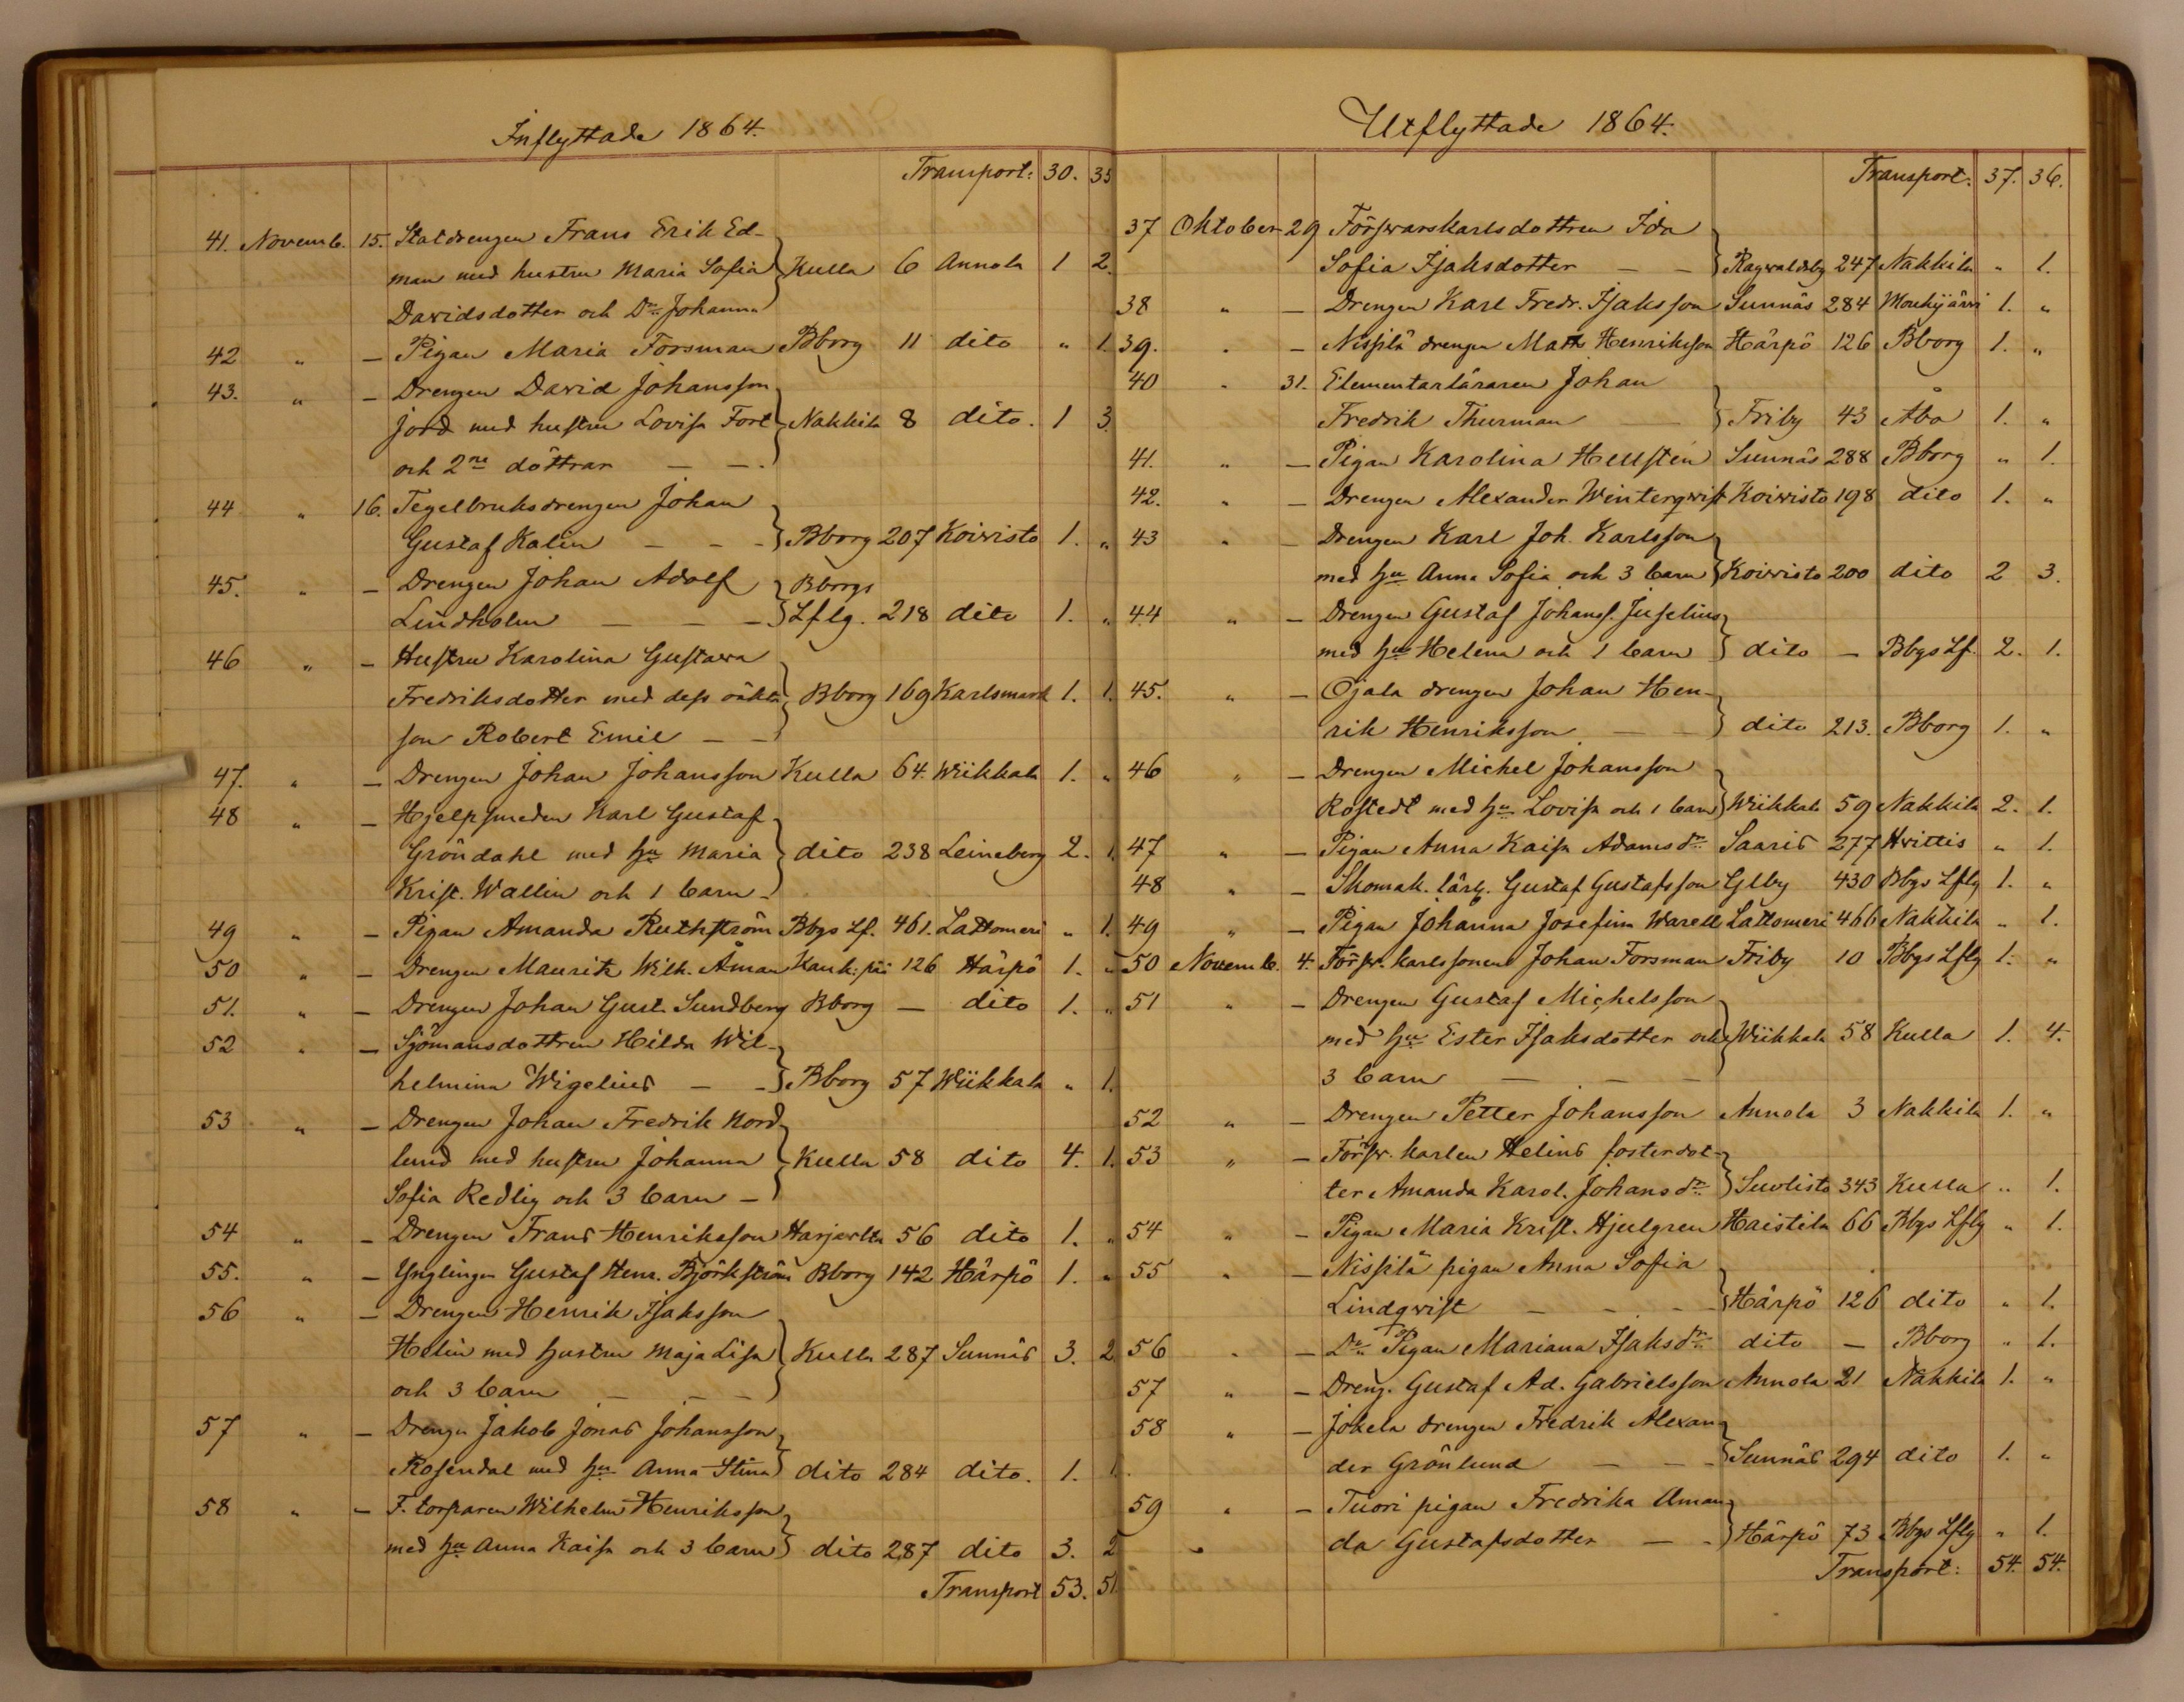 Inflyttade 1864.
Transport: 30. 35
41. Novemb. 15. Statdrengen Frans Erik Ed-
man med hustru Maria Sofia Kulla 6 Annola 1 2.
Davidsdotter och Dr. Johanna
42 " - Pigan Maria Forsman Bborg 11 dito " 1.
43. " - Drengen David Johansson
jord med hustru Lovisa Fort Nakkila 8 dito. 1 3.
och 2ne döttrar - -
44 " 16. Tegelbruksdrengen Johan
Gustaf Kalin - - - Bborg 207 Koivisto 1. "
45. " - Drengen Johan Adolf Bborgs
Lindholm - - - Lflg. 218 dito 1. "
46 " - Hustru Karolina Gustava
Fredriksdotter med dess oäkta Bborg 169 Karlsmark 1. 1.
son Robert Emil - -
47. " - Drengen Johan Johansson Kulla 64. Wiikkala 1. "
48 " - Hjelpsmeden Karl Gustaf
Gröndahl med hu Maria dito 238 Leineberg 2. 1.
Krist. Wallin och 1 barn -
49 " - Pigan Amanda Ruthström Bbgs Lf. 461. Lattomeri " 1.
50 " - Drengen Maurits Wilh. Åman Kank:pää 126 Härpö 1. "
51. " - Drengen Johan Gust. Sundberg Bborg - dito 1. "
52 " - Sjömansdottren Hilda Wil-
helmina Wigelius - - Bborg 57 Wiikkala " 1.
53 " - Drengen Johan Fredrik Nord-
lund med hustru Johanna Kulla 58 dito 4. 1.
Sofia Redlig och 3 barn -
54 " - Drengen Frans Henriksson Harjavlta 56 dito 1. "
55. " - Ynglingen Gustaf Henr. Björkström Bborg 142 Härpö 1. "
56 " - Drengen Henrik Isaksson
Helin med hustru Maja Lisa Kulla 287 Sunnäs 3. 2
och 3 barn - - -
57 " - Drengen Jakob Jonas Johansson
Rosendal med hu Anna Stina dito 284 dito. 1. 1.
58 " - F. torparen Wilhelm Henriksson
med hu Anna Kaisa och 3 barn dito 287 dito 3. 2
Transport 53. 51
Utflyttade 1864.
Transport: 37. 36.
37 Oktober 29 Förswarskarlsdottren Ida
Sofia Isaksdotter - - Ragvaldsby 247 Nakkila " 1.
38 " - Drengen Karl Fredr. Isaksson Sunnäs 284 Mouhijärvi 1. "
39. " - Nissilä drengen Matts Henriksson Härpö 126 Bborg 1. "
40 " 31. Elementarläraren Johan
Fredrik Thurman - Friby 43 Åbo 1. "
41. " - Pigan Karolina Hellsten Sunnäs 288 Bborg " 1.
42. " - Drengen Alexander Winterqvist Koivisto 198 dito 1. "
43 " - Drengen Karl Joh. Karlsson
med hu Anna Sofia och 3 barn Koivisto 200 dito 2 3.
44 " - Drengen Gustaf Johanss. Juselius
med hu Helena och 1 barn dito - Bbgs Lf. 2. 1.
45. " - Ojala drengen Johan Hen-
rik Henriksson - - dito 213. Bborg 1. "
46 " - Drengen Michel Johansson
Rostedt med hu Lovisa och 1 barn Wiikkala 59 Nakkila 2. 1.
47 " - Pigan Anna Kaisa Adamsdr. Saaris 277 Hvittis " 1.
48 " - Skomak. lärl. Gustaf Gustafsson Glby 430 Bbgs Lflg 1. "
49 " - Pigan Johanna Josefina Warell Lattomeri 466 Nakkila " 1.
50 Novemb. 4. Försv. karlssonen Johan Forsman Friby 10 Bbgs Lflg 1. "
51 " - Drengen Gustaf Michelsson
med hu Ester Isaksdotter och Wiikkala 58 Kulla 1. 4.
3 barn - - -
52 " - Drengen Petter Johansson Annola 3 Nakkila 1. "
53 " - Försv. karlen Helins fosterdot-
ter Amanda Karol. Johansdr. Suolisto 343 Kulla " 1.
54 " - Pigan Maria Krist. Hjulgren Haistila 66 Bbgs Lflg " 1.
55 " - Nissilä pigan Anna Sofia
Lindqvist - - - Härpö 126 dito " 1.
56 " - Do Pigan Mariana Isaksdr. dito - Bborg " 1.
57 " - Dreng. Gustaf Ad. Gabrielsson Annola 21 Nakkila 1. "
58 " - Jokela drengen Fredrik Alexan-
der Grönlund - - - Sunnäs 294 dito 1. "
59 " - Tuori pigan Fredrika Aman-
da Gustafsdotter - - Härpö 73 Bbgs Lflg " 1.
Transport: 54. 54.